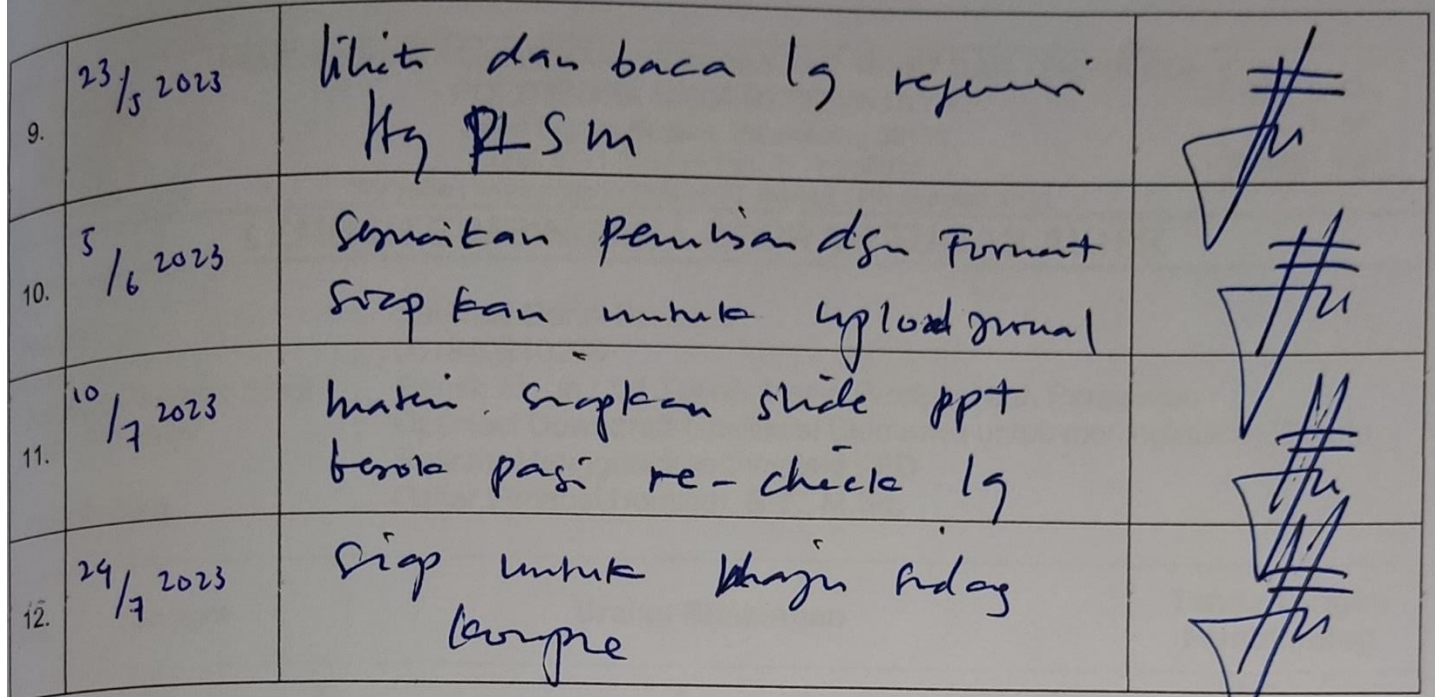 9. 23/5 2023 lihat dan baca lg referensi
Hg PLSM
10. 5/6 2023 sesuaikan penulisan dgn Format
siapkan untuk upload jurnal
11. 10/7 2023 materi siapkan slide ppt
besok pagi re-check lg
12. 24/7 2023 Siap untuk maju sidag
kompre